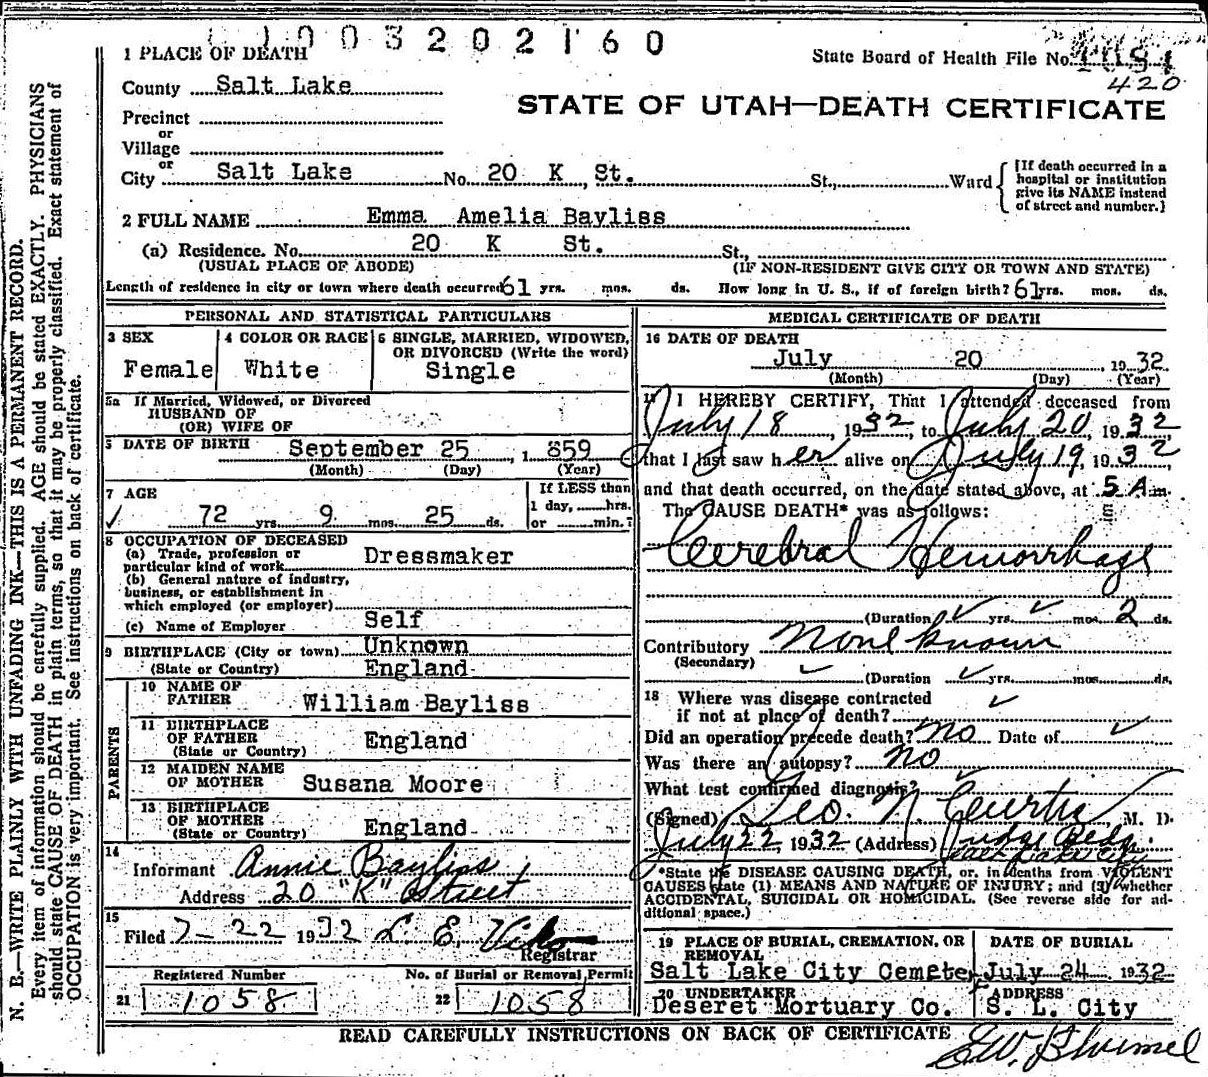 1003202160
1 PLACE OF DEATH
State Board of Health File No.
420
County Salt Lake
STATE OF UTAH—DEATH CERTIFICATE
Precinct
or
Village
or
City Salt Lake No. 20 K St. St., Ward
[If death occurred in a
hospital or institution
give its NAME instead
of street and number.]
2 FULL NAME Emma Amelia Bayliss
(a) Residence. No. 20 K St. St.,
(USUAL PLACE OF ABODE) (IF NON-RESIDENT GIVE CITY OR TOWN AND STATE)
Length of residence in city or town where death occurred 61 yrs. mos. ds. How long in U. S., if of foreign birth? 61 yrs. mos. ds.
PERSONAL AND STATISTICAL PARTICULARS
3 SEX
Female
4 COLOR OR RACE
White
5 SINGLE, MARRIED, WIDOWED,
OR DIVORCED (Write the word)
Single
5a If Married, Widowed, or Divorced
HUSBAND OF
(OR) WIFE OF
DATE OF BIRTH
September 25, 1859
(Month) (Day) (Year)
7 AGE
72 yrs. 9 mos. 25 ds.
If LESS than
1 day, hrs.
or min.?
8 OCCUPATION OF DECEASED
(a) Trade, profession or
particular kind of work Dressmaker
(b) General nature of industry,
business, or establishment in
which employed (or employer)
(c) Name of Employer Self
9 BIRTHPLACE (City or town) Unknown
(State or Country) England
PARENTS
10 NAME OF
FATHER William Bayliss
11 BIRTHPLACE
OF FATHER England
(State or Country)
12 MAIDEN NAME
OF MOTHER Susana Moore
13 BIRTHPLACE
OF MOTHER
(State or Country) England
14
Informant Annie Bayliss
Address 20 "K" Street
15
Filed 7-22 1932 L E
Registrar
Registered Number
21 1058
No. of Burial or Removal Permit
22 1058
MEDICAL CERTIFICATE OF DEATH
16 DATE OF DEATH
July 20 1932
(Month) (Day) (Year)
17 I HEREBY CERTIFY, That I attended deceased from
July 18, 1932, to July 20, 1932
that I last saw her alive on July 19, 1932,
and that death occurred, on the date stated above, at 5 A m.
The CAUSE DEATH* was as follows:
Cerebral Hemorrhage
(Duration) yrs. mos. 2 ds.
Contributory None known
(Secondary)
(Duration yrs. mos. ds.
18 Where was disease contracted
if not at place of death?
Did an operation precede death? No Date of
Was there an autopsy? No
What test confirmed diagnosis?
(Signed) Geo. N. Curtis, M. D.
July 22, 1932 (Address) Judge Bldg.
Salt Lake City
*State the DISEASE CAUSING DEATH, or, in deaths from VIOLENT
CAUSES state (1) MEANS AND NATURE OF INJURY; and (2) whether
ACCIDENTAL, SUICIDAL OR HOMICIDAL. (See reverse side for ad-
ditional space.)
19 PLACE OF BURIAL, CREMATION, OR
REMOVAL
Salt Lake City Cemeter
DATE OF BURIAL
July 24 1932
20 UNDERTAKER
Deseret Mortuary Co.
ADDRESS
S. L. City
READ CAREFULLY INSTRUCTIONS ON BACK OF CERTIFICATE
N. B.—WRITE PLAINLY WITH UNFADING INK—THIS IS A PERMANENT RECORD.
Every item of information should be carefully supplied. AGE should be stated EXACTLY. PHYSICIANS
should state CAUSE OF DEATH in plain terms, so that it may be properly classified. Exact statement of
OCCUPATION is very important. See instructions on back of certificate.